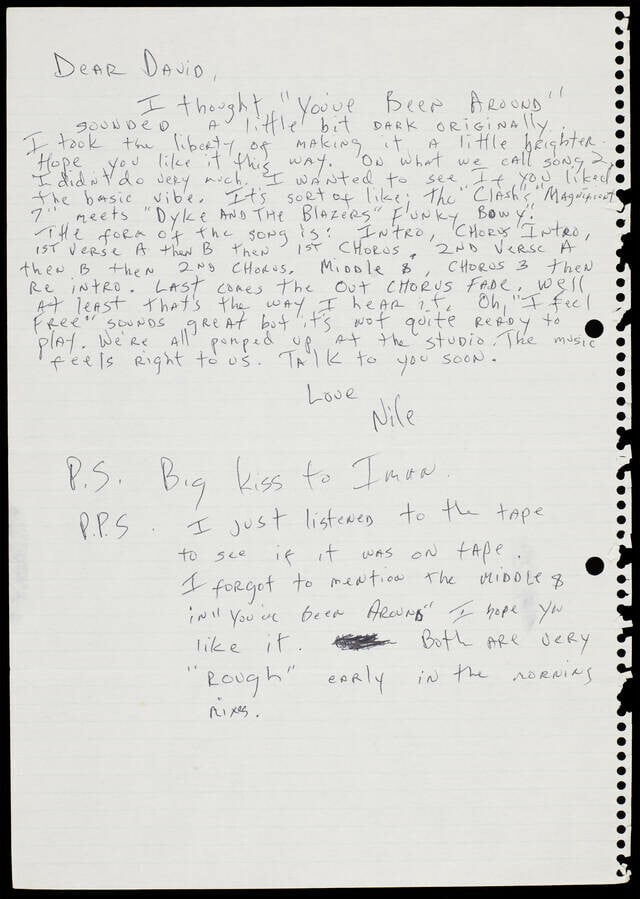 Dear David,
I thought "You've Been Around"
sounded a little bit dark originally.
I took the liberty of making it a little brighter.
Hope you like it this way. On what we call song 2,
I didn't do very much. I wanted to see if you liked
the basic vibe. It's sort of like; the "Clash's" "Magnificent
7" meets "Dyke and the Blazers" Funky Bowy!
The form of the song is: Intro, Chorus Intro,
1st verse A then B then 1st Chorus, 2nd verse A
then B then 2nd Chorus. Middle 8, Chorus 3 then
Re intro. Last comes the out chorus fade. Well
at least that's the way I hear it. Oh, "I feel
Free" sounds great but it's not quite ready to
play. We're all pumped up at the studio. The music
feels right to us. Talk to you soon.
Love
Nile
P.S. Big kiss to Iman.
P.P.S. I just listened to the tape
to see if it was on tape.
I forgot to mention the middle 8
in "You've been Around" I hope you
like it. Both are very
"Rough" early in the morning
mixes.